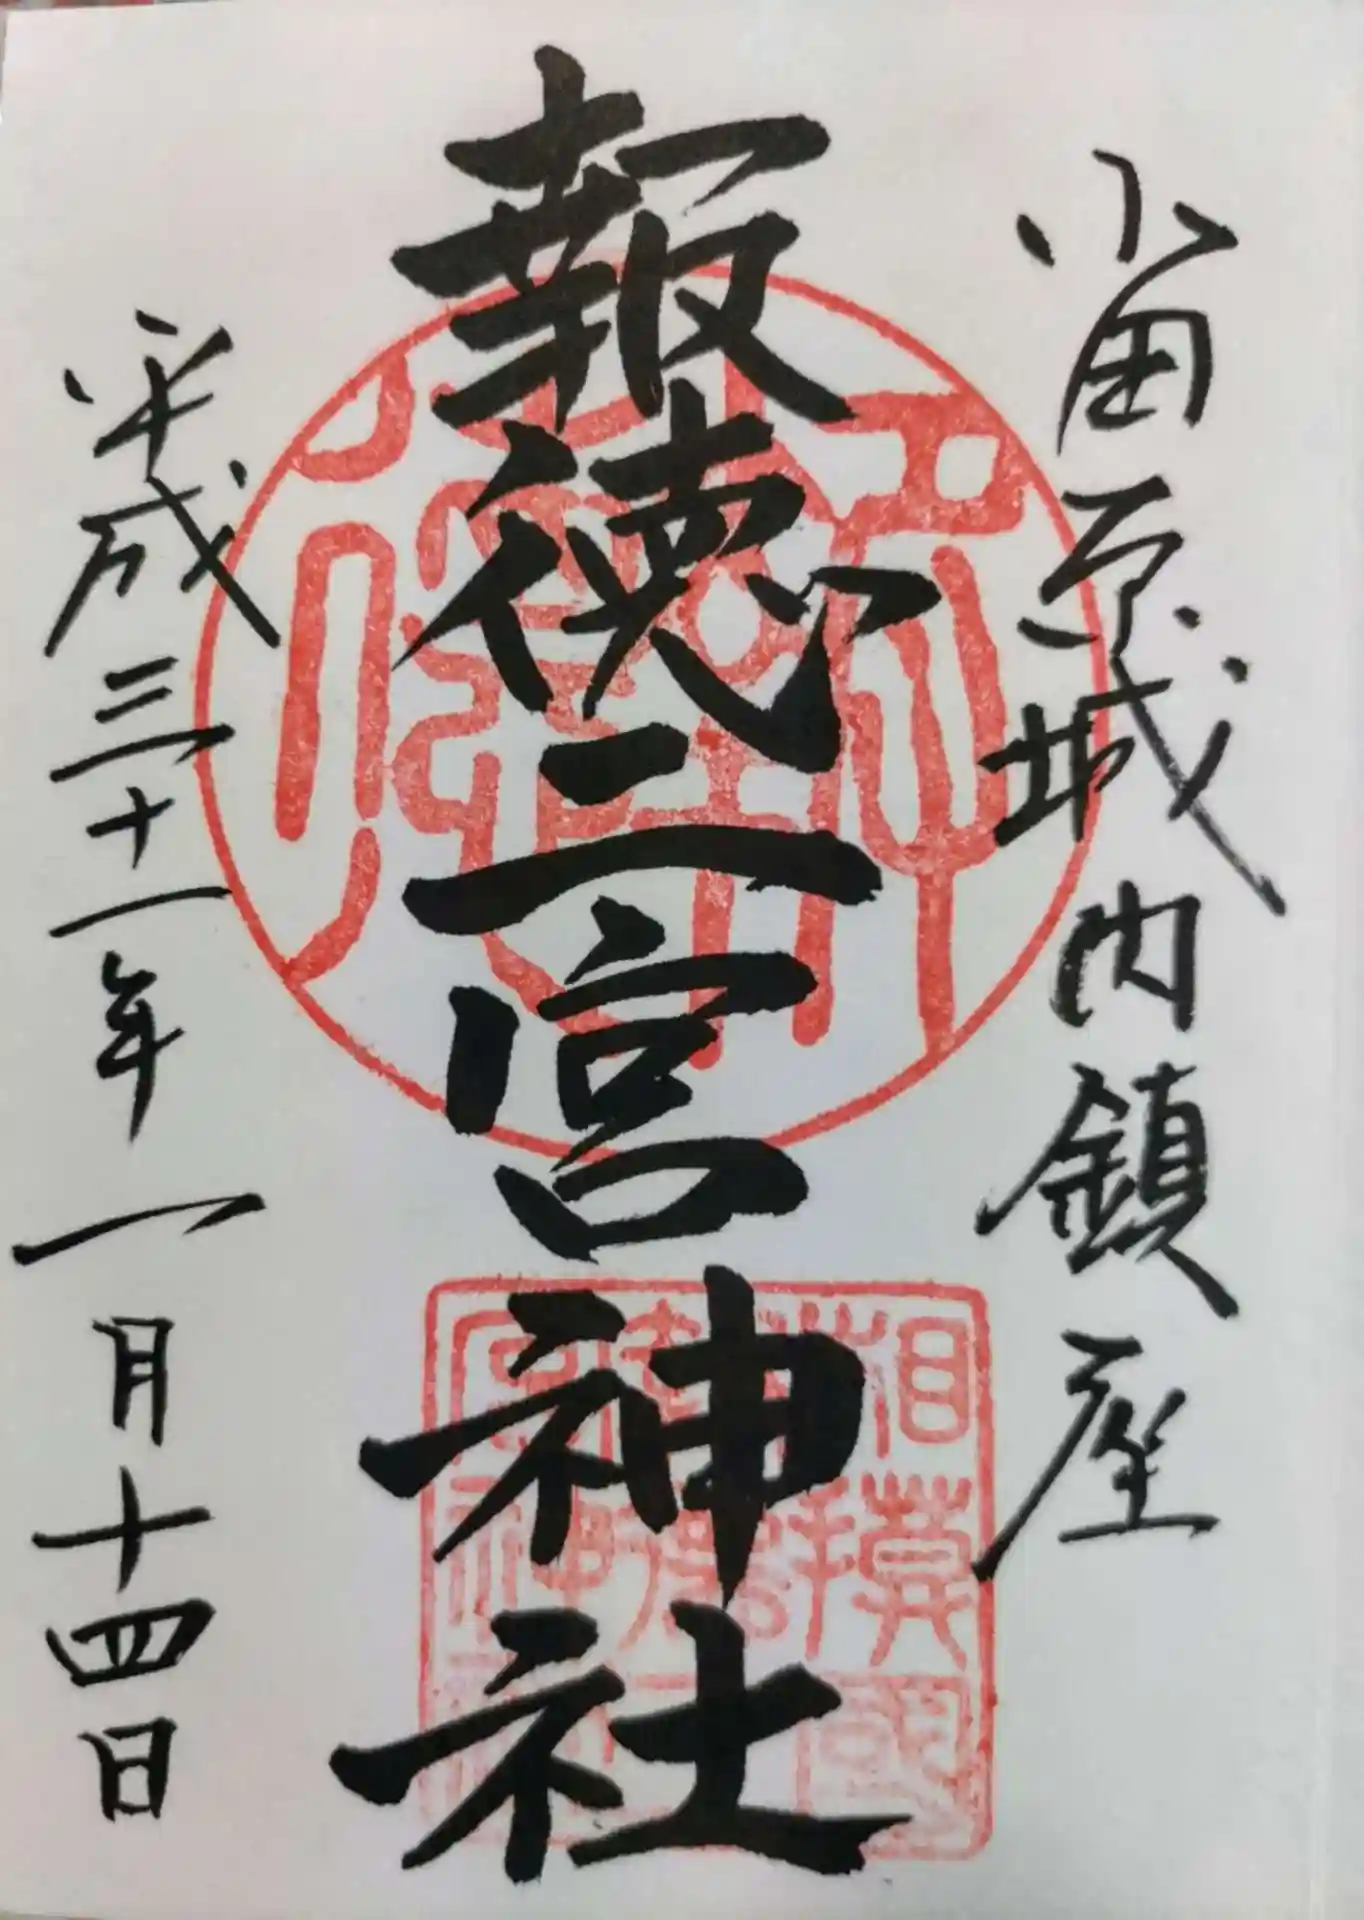 小田原城内鎮座
報徳二宮神社
平成三十一年一月十四日
相模國